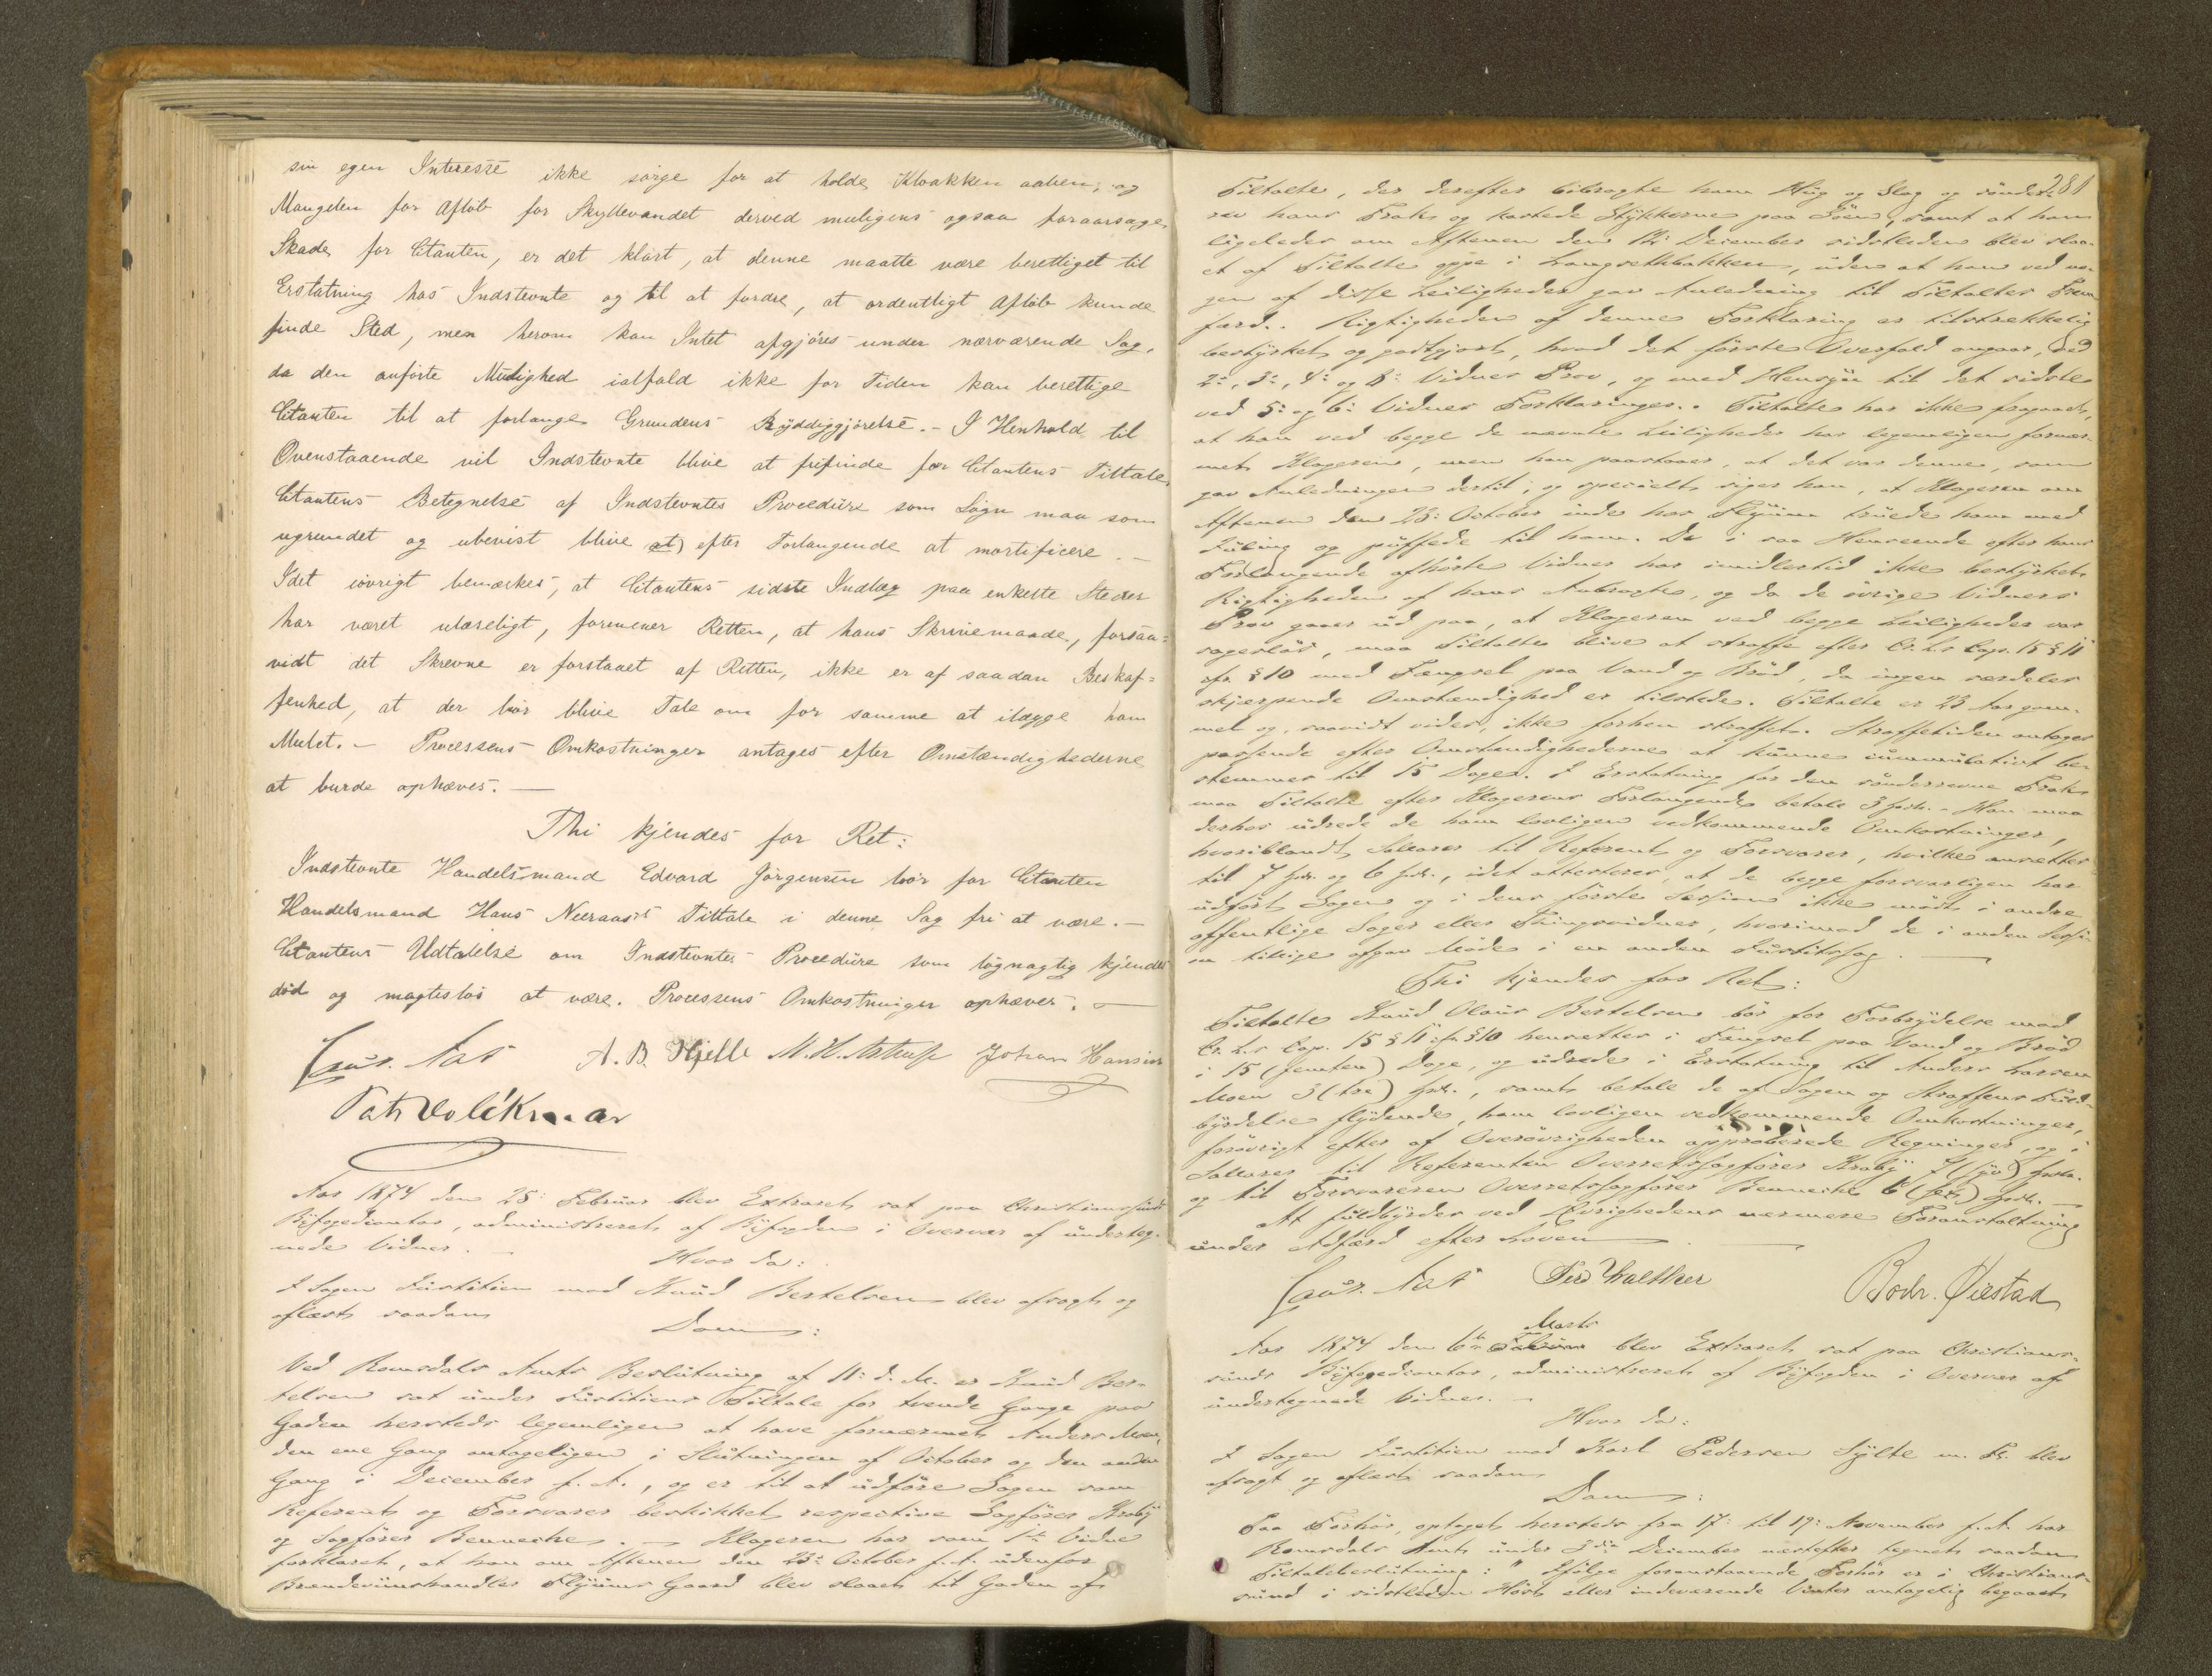 sin egen Interesse ikke sørge for at holde Kloakken aaben, og
Mangelen for Afløb for Skyllevandet derved muligens ogsaa foraarsage
Skade for Citanten, er det klart, at denne maatte være berettiget til
Erstatning hos Indstevnte og til at fordre, at ordentligt Afløb kunde
finde Sted, men herom kan Intet afgjøres under nærværende Sag,
da den anførte Mulighed ialfald ikke for Tiden kan berettige
Citanten til at forlange Grundens Ryddiggjørelse. - I Henhold til
Ovenstaaende vil Indstevnte blive at frifinde for Citantens Tiltale.
Citantens Betegnelse af Indstevntes Procedüre som Løgn maa som
ugrundet og ubevist blive at) efter Forlangende at mortificere. -
Idet iøvrigt bemærkes, at Citantens sidste Indlæg paa enkelte Steder
har været ulæseligt, formener Retten, at hans Skrivemaade, forsaa=
vidt det Skrevne er forstaaet af Retten, ikke er af saadan Beskaf=
fenhed, at der bør blive Tale om for samme at ilægge ham
Mulct. - Processens Omkostninger antages efter Omstændighederne
at burde ophæves. -
Thi kjendes for Ret:
Indstevnte Handelsmand Edvard Jørgensen bør for Citanten
Handelsmand Hans Neeraas's Tiltale i denne Sag fri at være. -
Citantens Udtalelse om Indstevntes Procedüre som løgnagtig kjendes
død og magtesløs at være. Processens Omkostninger ophæves. -
A. B. Hjelle M. H. Astrup Johan Hansen
Aar 1874 den 25: Februar blev Extraret sat paa Christianssunds
Byfogedcontor, administreret af Byfogden i Overvær af underteg-
nede Vidner. -
Hvor da:
I Sagen Justitien mod Knud Bertelsen blev afsagt og
aflæst saadan
Dom:
Ved Romsdals Amts Beslutning af 11: d. M. er Knud Ber-
telsen sat under Justitiens Tiltale for tvende Gange paa
Gaden hersteds legemligen at have fornærmet Anders Moen,
den ene Gang antageligen i Slutningen af October og den anden
Gang i December f. A., og er til at udføre Sagen som
Referent og Forsvarer beskikket respective Sagfører Kroby
og Sagfører Bennecke. - Klageren har som 1te Vidne
forklaret, at han om Aftenen den 23: October f. A. udenfor
Brændeviinshandler Flyums Gaard blev slaaet til Gaden af
281
Tiltalte, der derefter bibragte ham Hug og Slag og sønder-
rev hans Frak og kastede Stykkerne paa Søen, samt at han
ligeledes om Aftenen den 12: December sidstleden blev slaa-
et af Tiltalte oppe i Langvethbakken, uden at han ved no-
gen af disse Leiligheder gav Anledning til Tiltaltes Frem
færd. Rigtigheden af denne Forklaring er tilstrækkelig
bestyrket og godtgjort, hvad det første Overfald angaar, ved
2:, 3:, 4: og 8: Vidners Prov, og med Hensyn til det sidste
ved 5: og 6: Vidners Forklaringer. Tiltalte har ikke fragaaet,
at han ved begge de nævnte Leiligheder har legemligen fornær-
met Klageren, men han paastaaer, at det var denne, som
gav Anledningen dertil; og specielt siger han, at Klageren om
Aftenen den 23: October inde hos Flyum truede ham med
Juling og puffede til ham. Da i saa Henseende efter hans
Forlangende afhørte Vidner har imidlertid ikke bestyrket
Rigtigheden af hans Anbragte, og da de øvrige Vidners
Prov gaaer ud paa, at Klageren ved begge Leiligheder var
sagesløs, maa Tiltalte blive at straffe efter Cr. L.s Cap. 15 § 11
cfr. § 10 med Fængsel paa Vand og Brød, da ingen særdeles
skjærpende Omstændighed er tilstede. Tiltalte er 23 Aar gam-
mel og, saavidt vides, ikke forhen straffet. Straffetiden antages
passende efter Omstændighederne at kunne cummulativt be-
stemmes til 15 Dage. I Erstatning for den sønderrevne Frak
maa Tiltalte efter Klagerens Forlangende betale 3 Spd. - Han maa
derhos udrede de ham lovligen vedkommende Omkostninger,
hvoriblandt Salairer til Referent og Forsvarer, hvilke ansættes
til 7 Spd. og 6 Spd., idet attesteres, at de begge forsvarligen har
udført Sagen og i dens første Session ikke mødt i andre
offentlige Sager eller Thingsvidner, hvorimod de i anden Sessi-
on tillige afgav Møde i en anden Justitssag. -
Thi kjendes for Ret:
Tiltalte Knud Olaus Bertelsen bør for Forbrydelse mod
Cr. L.s Cap. 15 § 11 cfr. § 10 hensættes i Fængsel paa Vand og Brød
i 15 (femten) Dage, og udrede i Erstatning til Anders Larsen
Moen 3 (tre) Spd., samt betale de af Sagen og Straffens Fuld-
byrdelse flydende, ham lovligen vedkommende Omkostninger,
forøvrigt efter af Overøvrigheden approberede Regninger, og i
Salairer til Referenten Overretssagfører Kroby 7 (syv) Spd.
og til Forsvareren Overretssagfører Bennecke 6 (sex) Spd. -
At fuldbyrdes ved Øvrighedens nærmere Foranstaltning
under Adfærd efter Loven
Ferd Walther Bodv. Øiestad
Marts
Aar 1874 den 6te Februar blev Extraret sat paa Christians-
sunds Byfogedcontor, administreret af Byfogden i Overvær af
undertegnede Vidner. -
Hvor da:
I Sagen Justitien mod Karl Pedersen Sylte m. Fl. blev
afsagt og aflæst saadan
Dom:
Paa Forhør, optaget hersteds fra 17: til 19: November f. A. har
Romsdals Amt under 3die December næstefter tegnet saadan
Tiltalebeslutning: " Ifølge foranstaaende Forhør er i Christians-
sund i sidstleden Høst eller indeværende Vinter antagelig begaaet